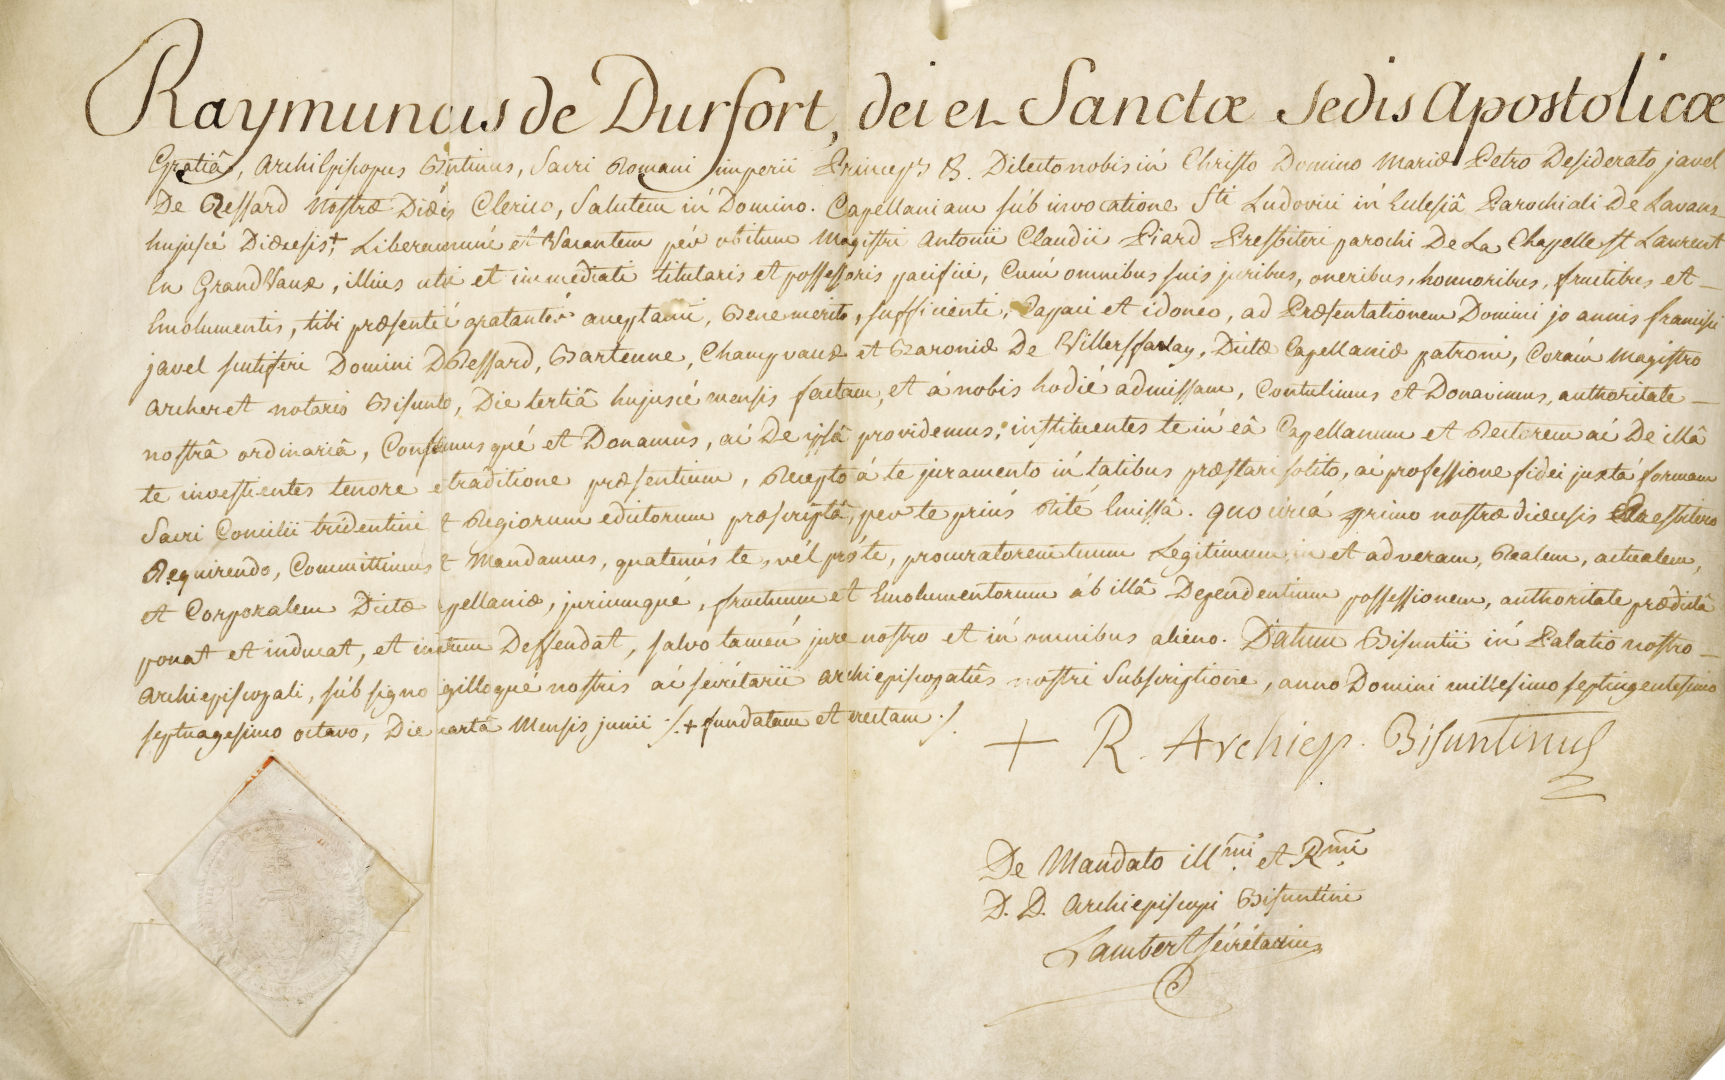 Raymundus de Durfort, dei et Sanctæ sedis Apostolicæ
Gratiâ, archiEpiscopus Bisuntinus, Sacri Romani imperii Princeps &. Dilecto nobis in Christo Domino Mariæ Petro Desiderato javel
De Bessard Nostræ Diœcis Clerico, Salutem in Domino. Capellaniam súb invocatione Sti Ludovici in Eclesiâ Parochiali De Lavans
hujuscé Diœcesis + Liberam et Vacantem pér obitum Magistri Antonii Claudii Piard Presbiteri parochi De La Chapelle St Laurent
En GrandVaux, illius ultimi et immediati titularis et possessoris pacifici, Cum omnibus suis juribus, oneribus, honnoribus, fructibus, et
Emolumentis, tibi præsenti gratanter acceptanti, Benemerito, sufficienti, Capaci et idoneo, ad Præsentationem Domini joannis francisci
javel scutiferi Domini D Bessard, Bartenne, Champvaux et Baroniæ De Villersfarlay, Dictæ Capellaniæ patroni, Coram Magistro
archeret notario Bisunto, Die tertiâ hujuscé mensis factam, et á nobis hodié admissam, Contulimus et Donavimus, authoritate
nostrâ ordinariâ, Conferimusqué et Donamus, ac De ipsâ providemus, instituentes te in eâ Capellanum et Rectorem ac De illâ
te investientes tenore et traditione præsentium, Recepto á te juramento in talibus præstari solito, ac professione fidei juxta formam
Sacri Concilii tridentini et Regiorum edictorum præscriptâ, per te prius Rité Emissâ. quo circá primo nostræ diœcesis Præsbitero
Requirendo, Committimus et Mandamus, quatenús te, vél pró te, procuratorem tuum Legitimum in et ad veram, Realem, actualem,
et Corporalem Dictæ Capellaniæ, juriumqué, fructuum et Emolumentorum áb illâ Dependentium possessionem, authoritate prædictâ
ponat et inducat, et inductum Deffendat, salvo tamen jure nostro et in omnibus alieno. Datum Bisuntii in Palatio nostro
archiepiscopali, súb signo sigilloqué nostris ac sécrétarii archiepiscopatûs nostri Subscriptione, anno Domini millesimo septingentesimo
septuagesimo octavo, Die quartâ Mensis junii ./. + fundatam et erectam ./.
+ R. Archiep. Bisuntinus
De Mandato illmi et Rmi
D. D. archiepiscopi Bisuntini
Lambert sécrétarius